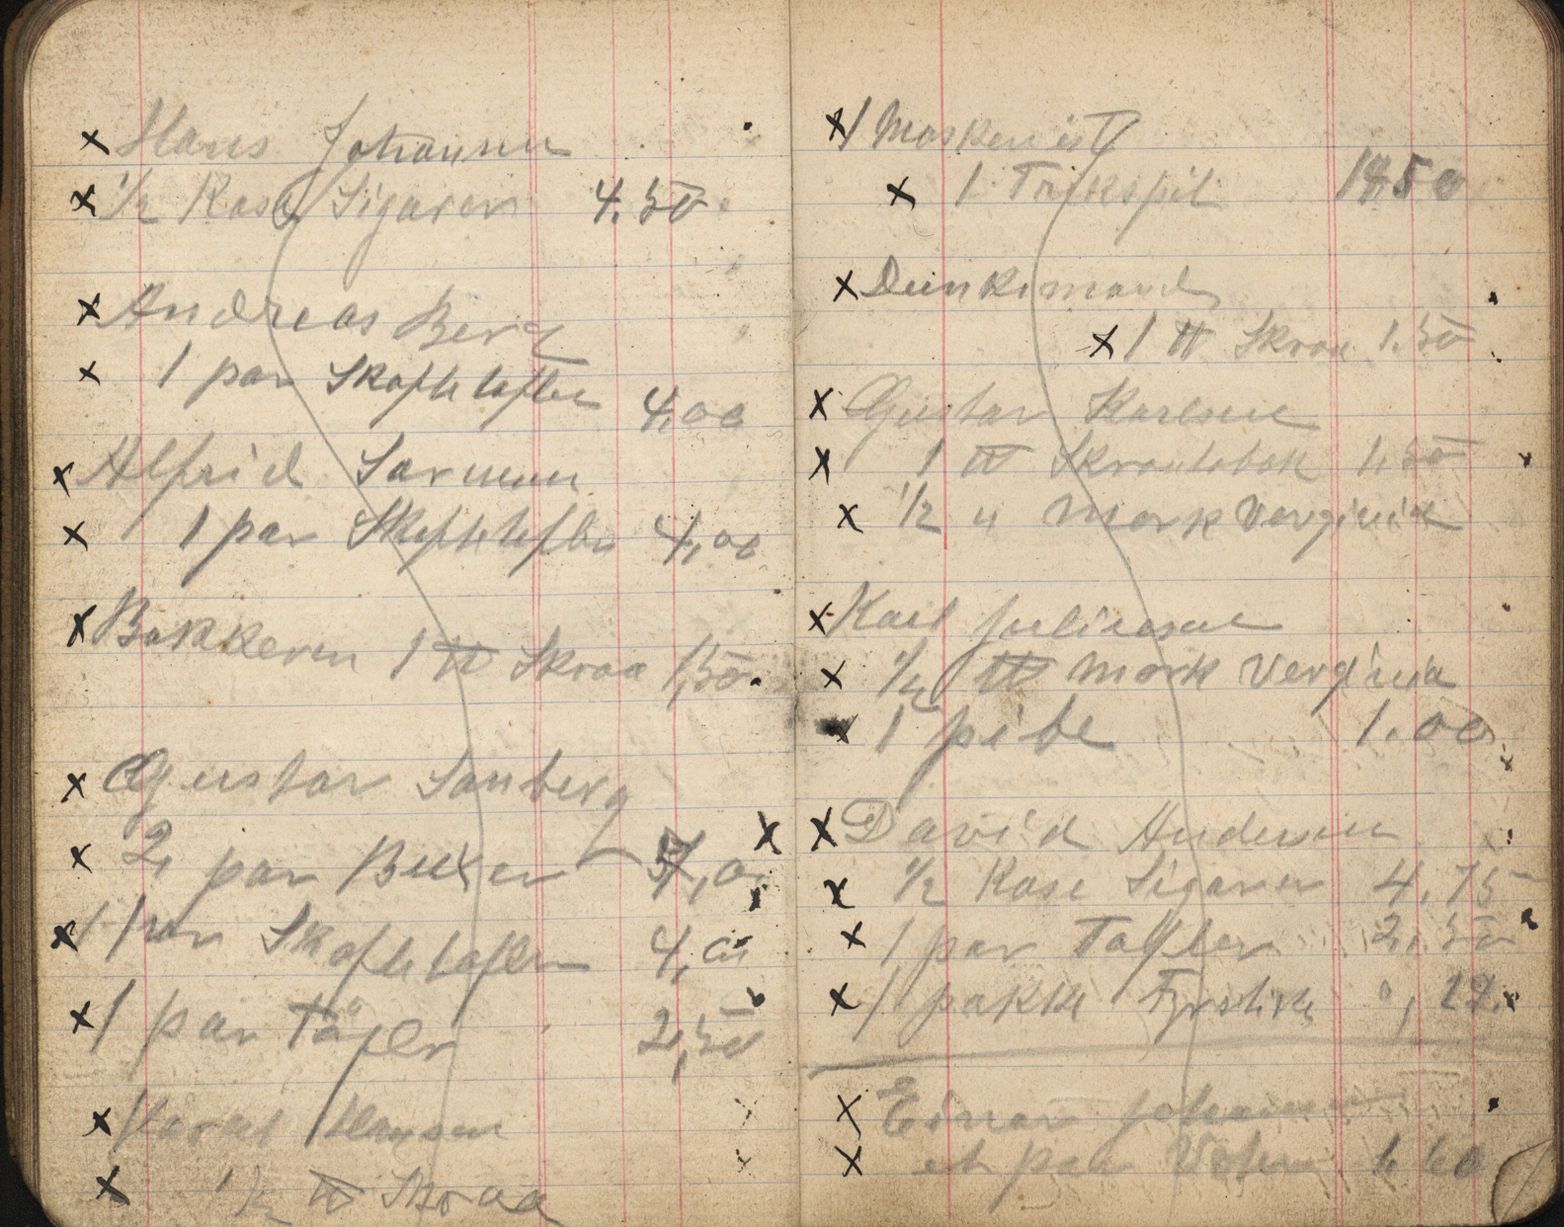 x Hans Johansen
x 1/2 Kase Sigarer 4.50
x Andreas Berg
x 1 par Skafteløfter 4,00
x Alfrid Sarmun
x 1 par Skafteløfler 4,00
x Bakkeren 1 ℔ Skraa 1,50
x Gustav Sanberg
x 2 par Buxer
x 1 par Skafteløfler 4,
x 1 par Tøfler 2,50
x Haral Hansen
x 1/2 ℔ Skraa
x 1 Maskenist
x 1 Trækspil
x Dunkimand
x 1 ℔ Skraa 1.50
x Gustav Karlsen
x 1 ℔ Skraatobak 1,50
x 1/2 " Mork Verginia
x Karl Juliusen
x 1/2 ℔ Mork Verginia
x 1 pibe 1.00
x David Andersen
x 1/2 Kase Sigarer 4,75
x 1 par Tøfler 2,50
x 1 pakke Fyrstike 0,
x Einar Johansen
x et par